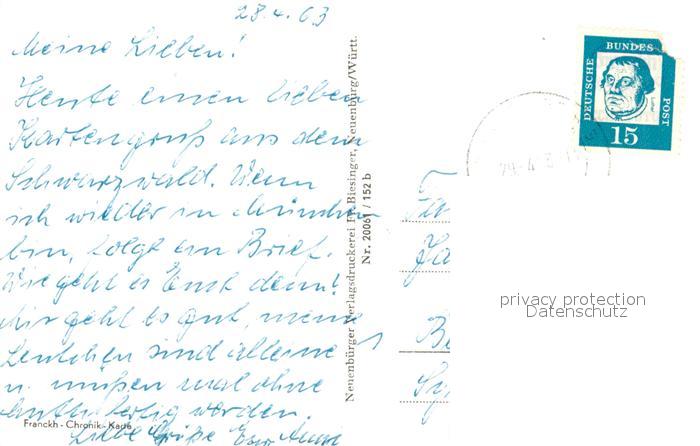 28.4.63
Meine Lieben!
Heute einen lieben
Kartengruß aus dem
Schwarzwald. Wenn
ich wieder in München
bin, folgt ein Brief.
Wie geht es Euch denn?
Mir geht es gut, meine
Leutchen sind alleine
u. müßen mal ohne
fertig werden.
Franckh - Chronik - Karte
Liebe Grüße Eure Anni
Neuenbürger Verlagsdruckerei Fr. Biesinger, Neuenbürg/Württ.
Nr. 20061 / 152 b
DEUTSCHE
BUNDES
POST
15
privacy protection
Datenschutz